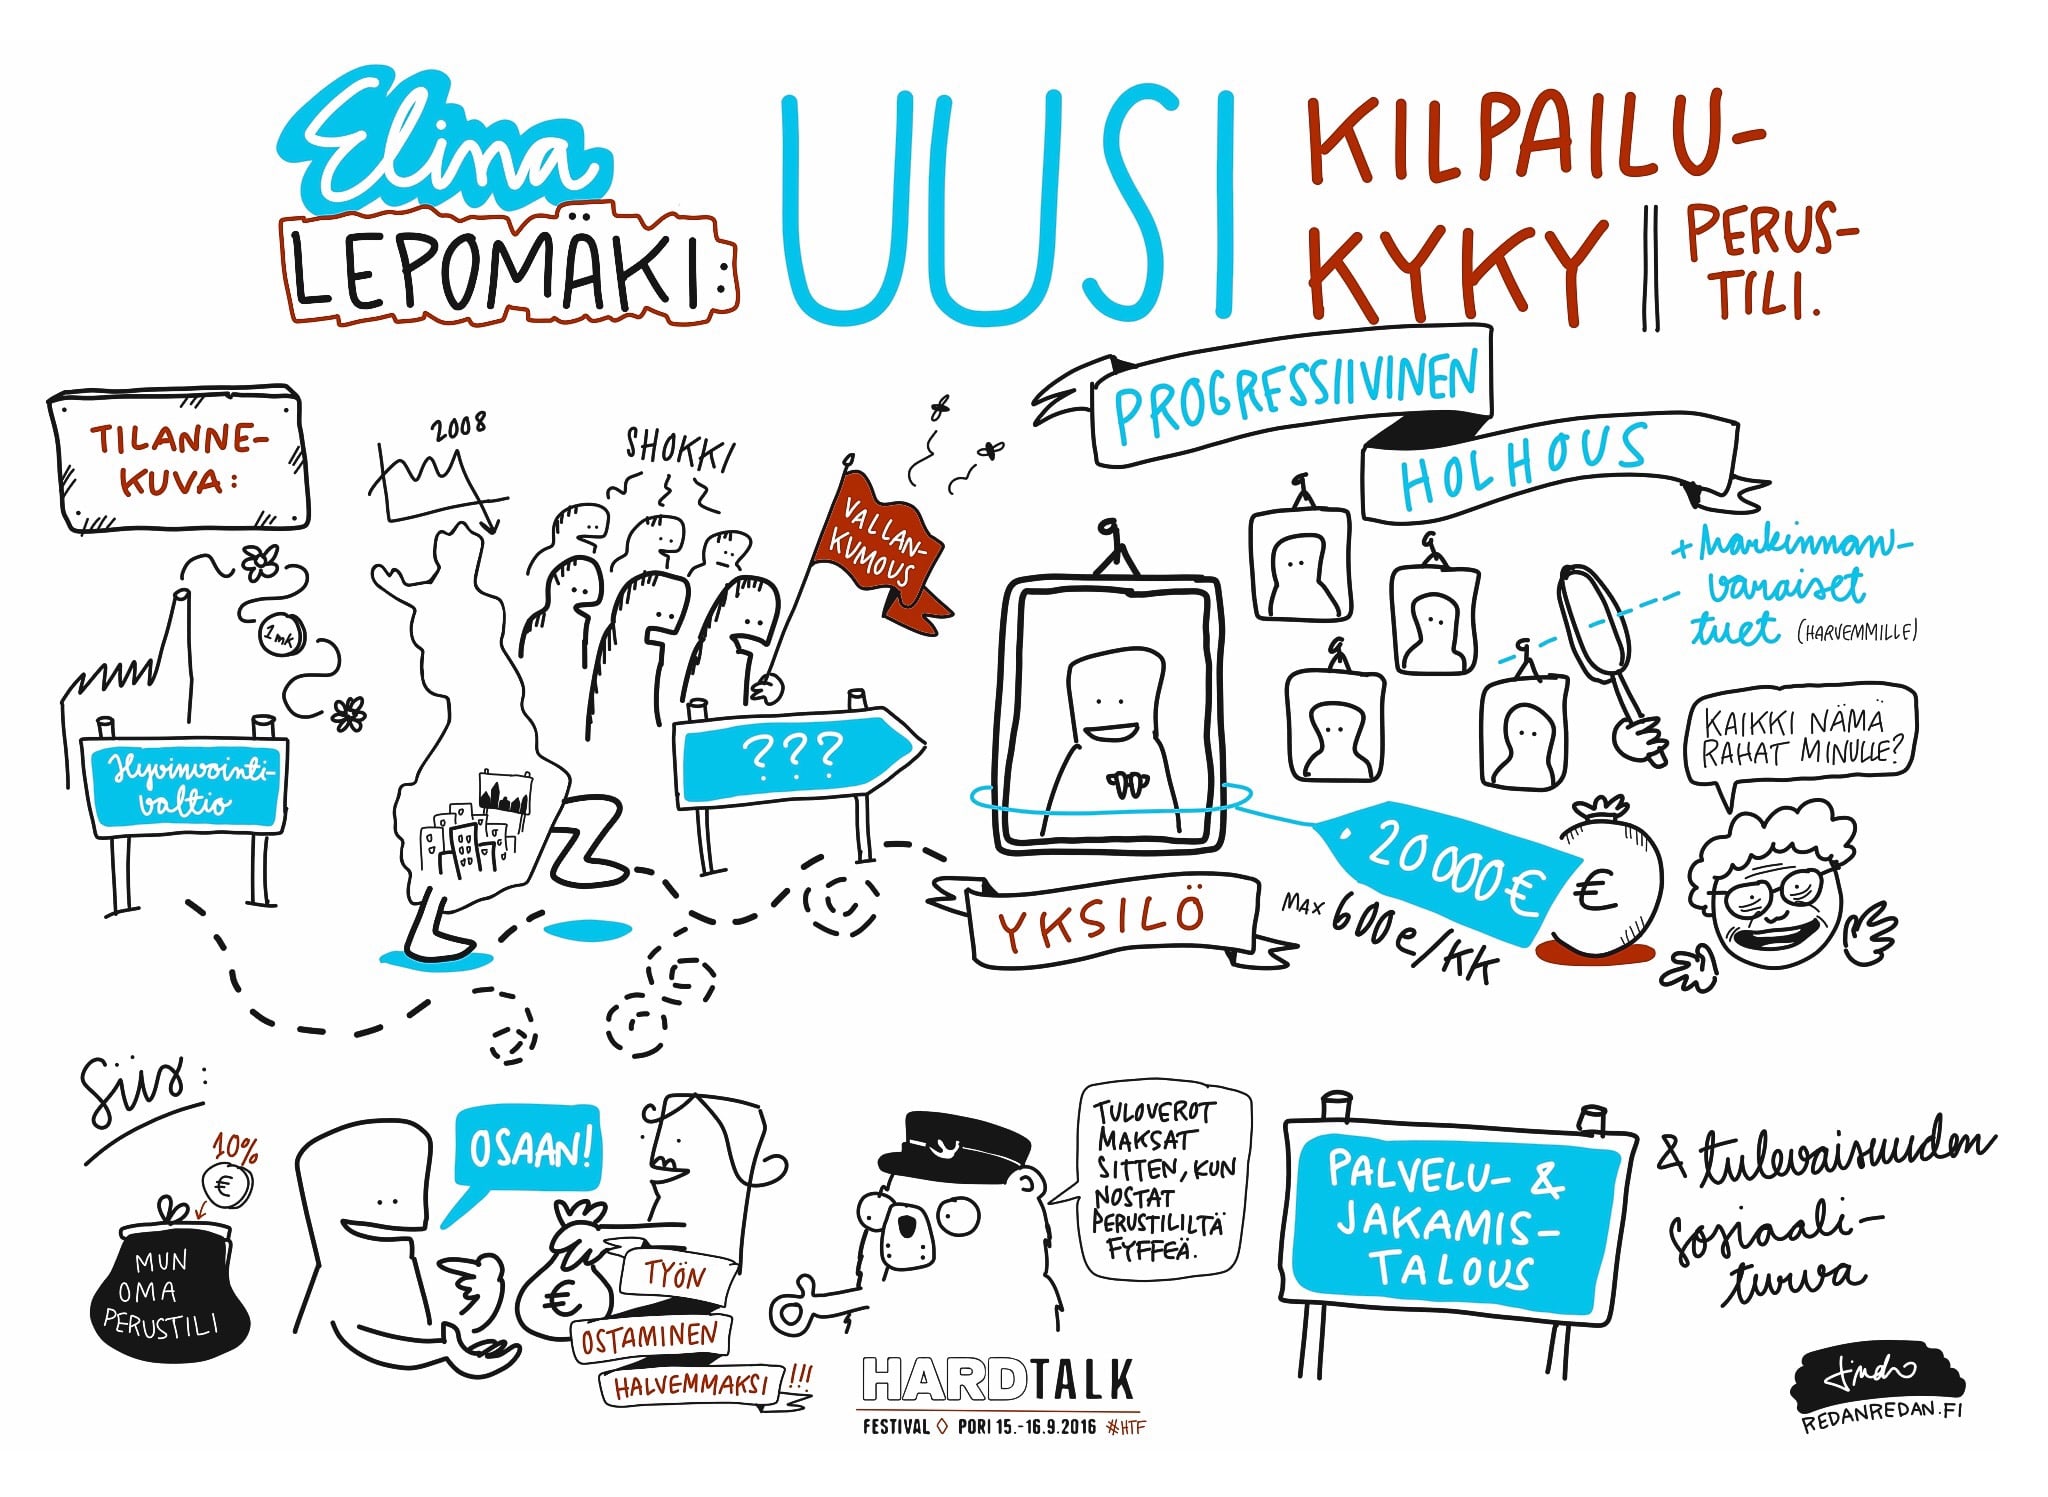 Elina
LEPOMÄKI:
UUSI
KILPAILU-
KYKY
PERUS-
TILI.
TILANNE-
KUVA:
2008
SHOKKI
VALLAN-
KUMOUS
1mk
Hyvinvointi-
valtio
???
PROGRESSIIVINEN
HOLHOUS
+ Markinnan-
varaiset
tuet (HARVEMMILLE)
KAIKKI NÄMÄ
RAHAT MINULLE?
20 000 €
€
MAX 600e/KK
YKSILÖ
Siis:
10%
€
MUN
OMA
PERUSTILI
OSAAN!
€
TYÖN
OSTAMINEN
HALVEMMAKSI !!!
TULOVEROT
MAKSAT
SITTEN, KUN
NOSTAT
PERUSTILILTÄ
FYFFEÄ.
PALVELU- &
JAKAMIS-
TALOUS
& tulevaisuuden
sosiaali-
turva
HARDTALK
FESTIVAL ◊ PORI 15.-16.9.2016 #HTF
REDANREDAN.FI